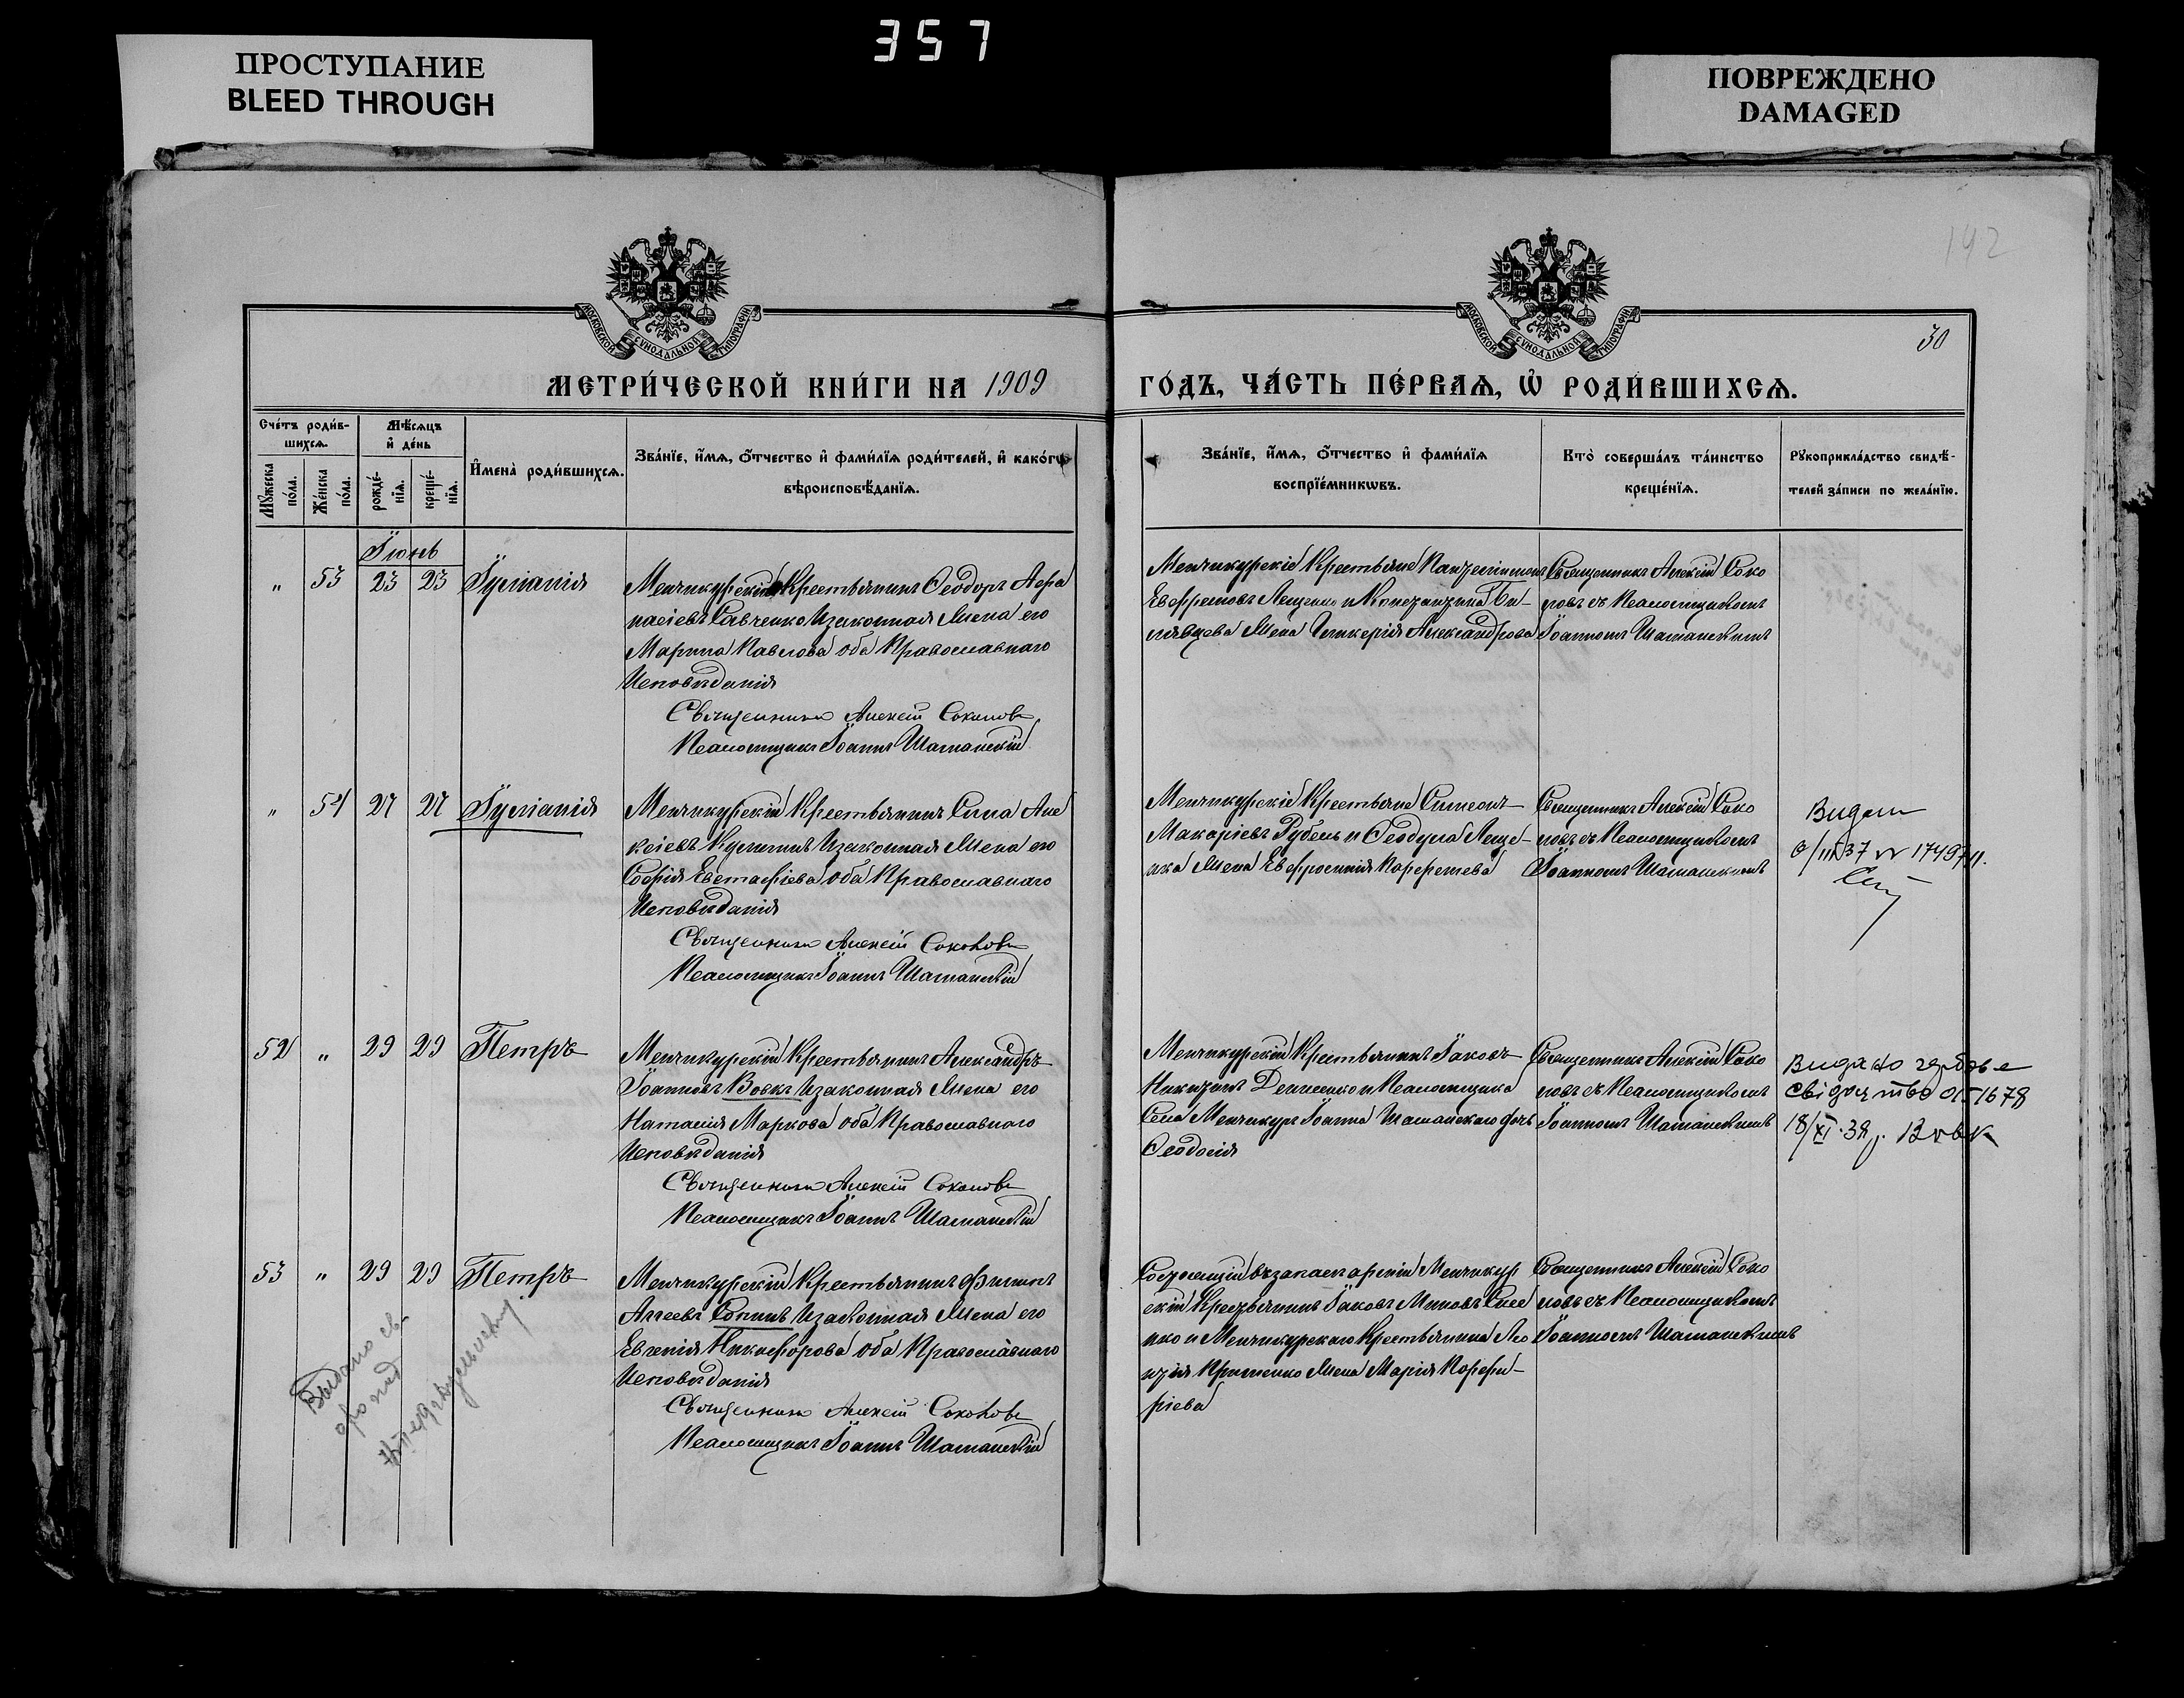 357
ПРОСТУПАНИЕ
BLEED THROUGH
ПОВРЕЖДЕНО
DAMAGED
142
МОСКОВСКОЙ СУНОДАЛЬНОЙ ТИПОГРАФІИ
МОСКОВСКОЙ СУНОДАЛЬНОЙ ТИПОГРАФІИ
30
МЕТРИ́ЧЕСКОЙ КНИ́ГИ НА 1909
ГО́ДЪ, ЧА́СТЬ ПЕ́РВАѦ, Ѡ҆ РОДИ́ВШИХСѦ.
Сче́тъ роди́в-
шихсѧ.
Мѣ́сѧцъ
и҆ де́нь
Мꙋ́жеска
по́ла.
Же́нска
по́ла.
рожде́-
нїѧ.
креще́-
нїѧ.
И҆мена̀ роди́вшихсѧ.
Зва́нїе, и҆́мѧ, ѻ҆́тчество и҆ фами́лїѧ роди́телей, и҆ како́гѡ
вѣроисповѣ́данїѧ.
Зва́нїе, и҆́мѧ, ѻ҆́тчество и҆ фами́лїѧ
воспрїе́мникѡвъ.
Кто̀ соверша́лъ та́инство
креще́нїѧ.
Рꙋкоприкла́дство свидѣ́-
телей за́писи по жела́нїю.
Іюнь
" 53 23 23 Іуліанія
Менчикурскій Крестьянинъ Ѳеодоръ Аѳа
насіевъ Савченко и законная жена его
Марина Павлова оба Православнаго
Исповѣданія
Священникъ Алексій Соколовъ
Псаломщикъ Іоаннъ Шаманскій
Менчикурскіе Крестьяне
Евфремовъ Лещенко и
жена Гликерія Александрова
Священникъ Алексій Соко
ловъ съ Псаломщикомъ
Іоанномъ Шаманскимъ
" 54 27 27 Іуліанія
Менчикурскій Крестьянинъ Сила Але
ксіевъ и законная жена его
Софія Евстафіева оба Православнаго
Исповѣданія
Священникъ Алексій Соколовъ
Псаломщикъ Іоаннъ Шаманскій
Менчикурскіе Крестьяне Симеонъ
Макаріевъ Рубель и Ѳеодула Леще-
нка жена Евфросинія
Священникъ Алексій Соко
ловъ съ Псаломщикомъ
Іоанномъ Шаманскимъ
Видан
52 " 29 29 Петръ
Менчикурскій Крестьянинъ Александръ
Іоанновъ Вовкъ и законная жена его
Наталія Маркова оба Православнаго
Исповѣданія
Священникъ Алексій Соколовъ
Псаломщикъ Іоаннъ Шаманскій
Менчикурскій Крестьянинъ Іаковъ
Никитинъ Денисенко и Псаломщика
Села Менчикуръ Іоанна Шаманскаго дочь
Ѳеодосія
Священникъ Алексій Соко
ловъ съ Псаломщикомъ
Іоанномъ Шаманскимъ
Видано гербове
свідоцтво 051678
18/XI.38р. Вовк
53 " 29 29 Петръ
Менчикурскій Крестьянинъ Филипъ
Аггеевъ Сонинъ и законная жена его
Евгенія Никифорова оба Православнаго
Исповѣданія
Священникъ Алексій Соколовъ
Псаломщикъ Іоаннъ Шаманскій
Состоящій въ запасѣ арміи Менчикур
скій Крестьянинъ Іаковъ
нко и Менчикурскаго Крестьянина Ле
жена Марія Порфи-
ріева
Священникъ Алексій Соко
ловъ съ Псаломщикомъ
Іоанномъ Шаманскимъ
Выдано св